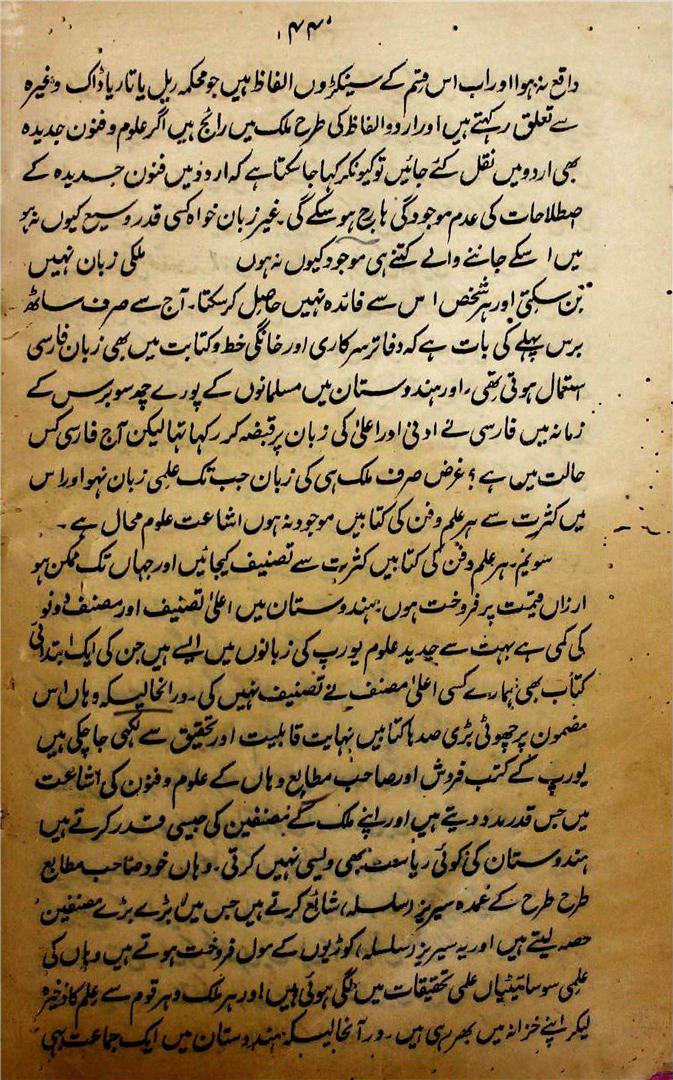 ۴۴۰
واقع نہ ہوا اور اب اس قسم کے سینکڑوں الفاظ ہیں جو محکمہ ریل یا تار یا ڈاک وغیرہ
سے تعلق رکہتے ہیں اور اردو الفاظ کی طرح ملک میں رائج ہیں اگر علوم و فنون جدیدہ
بھی اردو میں نقل کئے جائیں تو کیونکر کہا جا سکتا ہے کہ اردو میں فنون جدیدہ کے
اصطلاحات کی عدم موجودگی ہارج ہو سکے گی۔ غیر زبان خواہ کسی قدر وسیع کیوں نہ ہو
میں اسکے جاننے والے کتنے ہی موجود کیوں نہ ہوں ملکی زبان نہیں
بن سکتی اور ہر شخص اس سے فائدہ نہیں حاصل کر سکتا۔ آج سے صرف ساٹھ
برس پہلے کی بات ہے کہ دفاتر سرکاری اور خانگی خط و کتابت میں بھی زبان فارسی
استعمال ہوتی تھی۔ اور ہندوستان میں مسلمانوں کے پورے چھ سو برس کے
زمانہ میں فارسی نے ادنیٰ اور اعلیٰ کی زبان پر قبضہ کر رکہا تہا لیکن آج فارسی کس
حالت میں ہے؟ غرض صرف ملک ہی کی زبان جب تک علمی زبان نہو اور اس
میں کثرت سے ہر علم و فن کی کتابیں موجود نہ ہوں اشاعت علوم محال ہے۔
سویم۔ ہر علم و فن کی کتابیں کثرت سے تصنیف کیجائیں اور جہاں تک ممکن ہو
ارزاں قیمت پر فروخت ہوں۔ ہندوستان میں اعلیٰ تصنیف اور مصنف دونو
کی کمی ہے بہت سے جدید علوم یورپ کی زبانوں میں ایسے ہیں جن کی ایک ابتدائی
کتاب بھی ہمارے کسی اعلیٰ مصنف نے تصنیف نہیں کی۔ درانحالیکہ وہاں اس
مضمون پر چھوٹی بڑی صدہا کتابیں نہایت قابلیت اور تحقیق سے لکھی جا چکی ہیں
یورپ کے کتب فروش اور صاحب مطابع وہاں کے علوم و فنون کی اشاعت
میں جس قدر مدد دیتے ہیں اور اپنے ملک کے مصنفین کی جیسی قدر کرتے ہیں
ہندوستان کی کوئی ریاست بھی ویسی نہیں کرتی۔ وہاں خود صاحب مطابع
طرح طرح کے عمدہ سیریز (سلسلہ) شائع کرتے ہیں جس میں بڑے بڑے مصنفین
حصہ لیتے ہیں اور یہ سیریز (سلسلہ) کوڑیوں کے مول فروخت ہوتے ہیں وہاں کی
علمی سوسائیٹیاں علمی تحقیقات میں لگی ہوئی ہیں اور ہر ملک و ہر قوم سے علم کا ذخیرہ
لیکر اپنے خزانہ میں بھر رہی ہیں۔ درآنحالیکہ ہندوستان میں ایک جماعت بھی